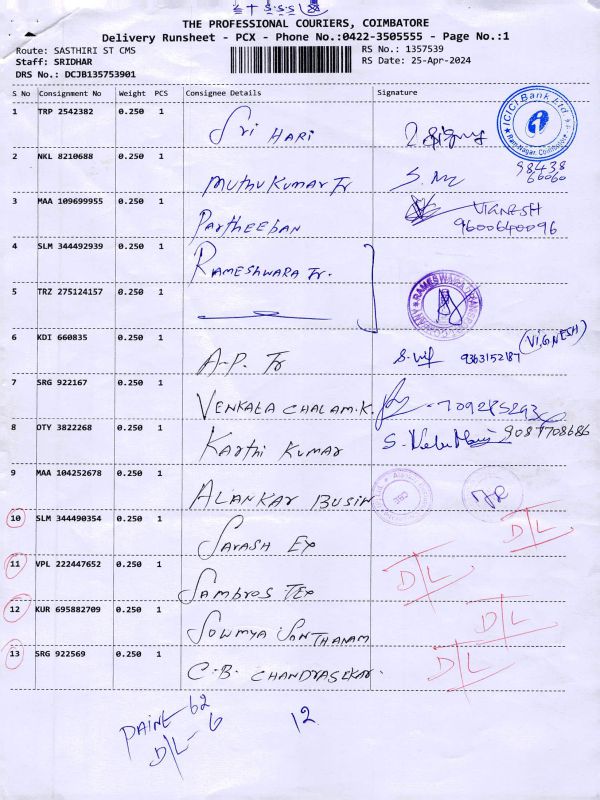 THE PROFESSIONAL COURIERS, COIMBATORE
Delivery Runsheet - PCX - Phone No.:0422-3505555 - Page No.:1
Route: SASTHIRI ST CMS
RS No.: 1357539
Staff: SRIDHAR
RS Date: 25-Apr-2024
DRS No.: DCJB135753901
S No Consignment No Weight PCS Consignee Details Signature
1 TRP 2542382 0.250 1 Sri HARI
ICICI Bank Ltd.
Ram Nagar, Coimbatore
2 NKL 8210688 0.250 1 Muthu Kumar Tr
98438
66060
3 MAA 109699955 0.250 1 Partheeban VIGNESH
9600640096
4 SLM 344492939 0.250 1 RAMESHWARA Tr.
5 TRZ 275124157 0.250 1
6 KDI 660835 0.250 1 A.P. Tr 9363152187 (VIGNESH)
7 SRG 922167 0.250 1 VENKATA CHALAM.K.
8 OTY 3822268 0.250 1 Karthi Kumar 9087708686
9 MAA 104252678 0.250 1 ALANKAR BUSIN
10 SLM 344490354 0.250 1 Sarash Ex D/L
11 VPL 222447652 0.250 1 Sambros TEX D/L
12 KUR 695882709 0.250 1 Sowmya Santhanam D/L
13 SRG 922569 0.250 1 C.B. CHANDRASEKAR. D/L
62
D/L- 6
12